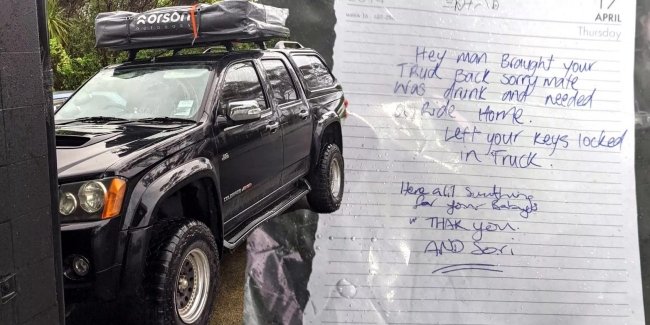 orson
17
APRIL
Thursday
Hey man Brought your
Truck Back sorry mate
Was drunk and needed
a Ride Home.
Left your keys locked
in Truck.
Heres a lil
for your
THAK you.
AND Sori